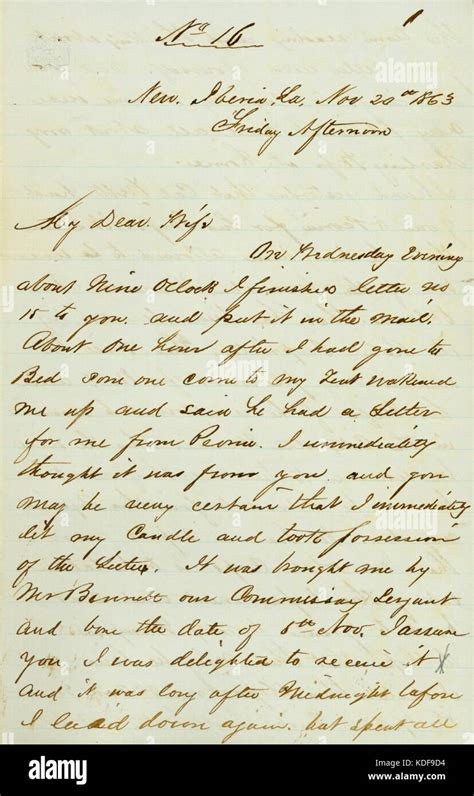 No 16
New. Iberia, La, Nov 20th 1863
Friday Afternoon
My Dear. Wife
On Wednesday Evening
about Nine OClock I finished letter no
15 to you. and put it in the mail.
About one hour after I had gone to
Bed some one come to my Tent wakened
me up and said he had a Letter
for me from Peoria. I immediately
thought it was from you and you
may be very certain that I immediately
lit my Candle and took possession
of the Letter. It was brought me by
Mr Bennett our Commissary Sergant
and bore the date of 5th Nov. I assure
you I was delighted to receive it
and it was long after Midnight before
I laid down again. but spent all
alamy stock photo
KDF9D4
www.alamy.com